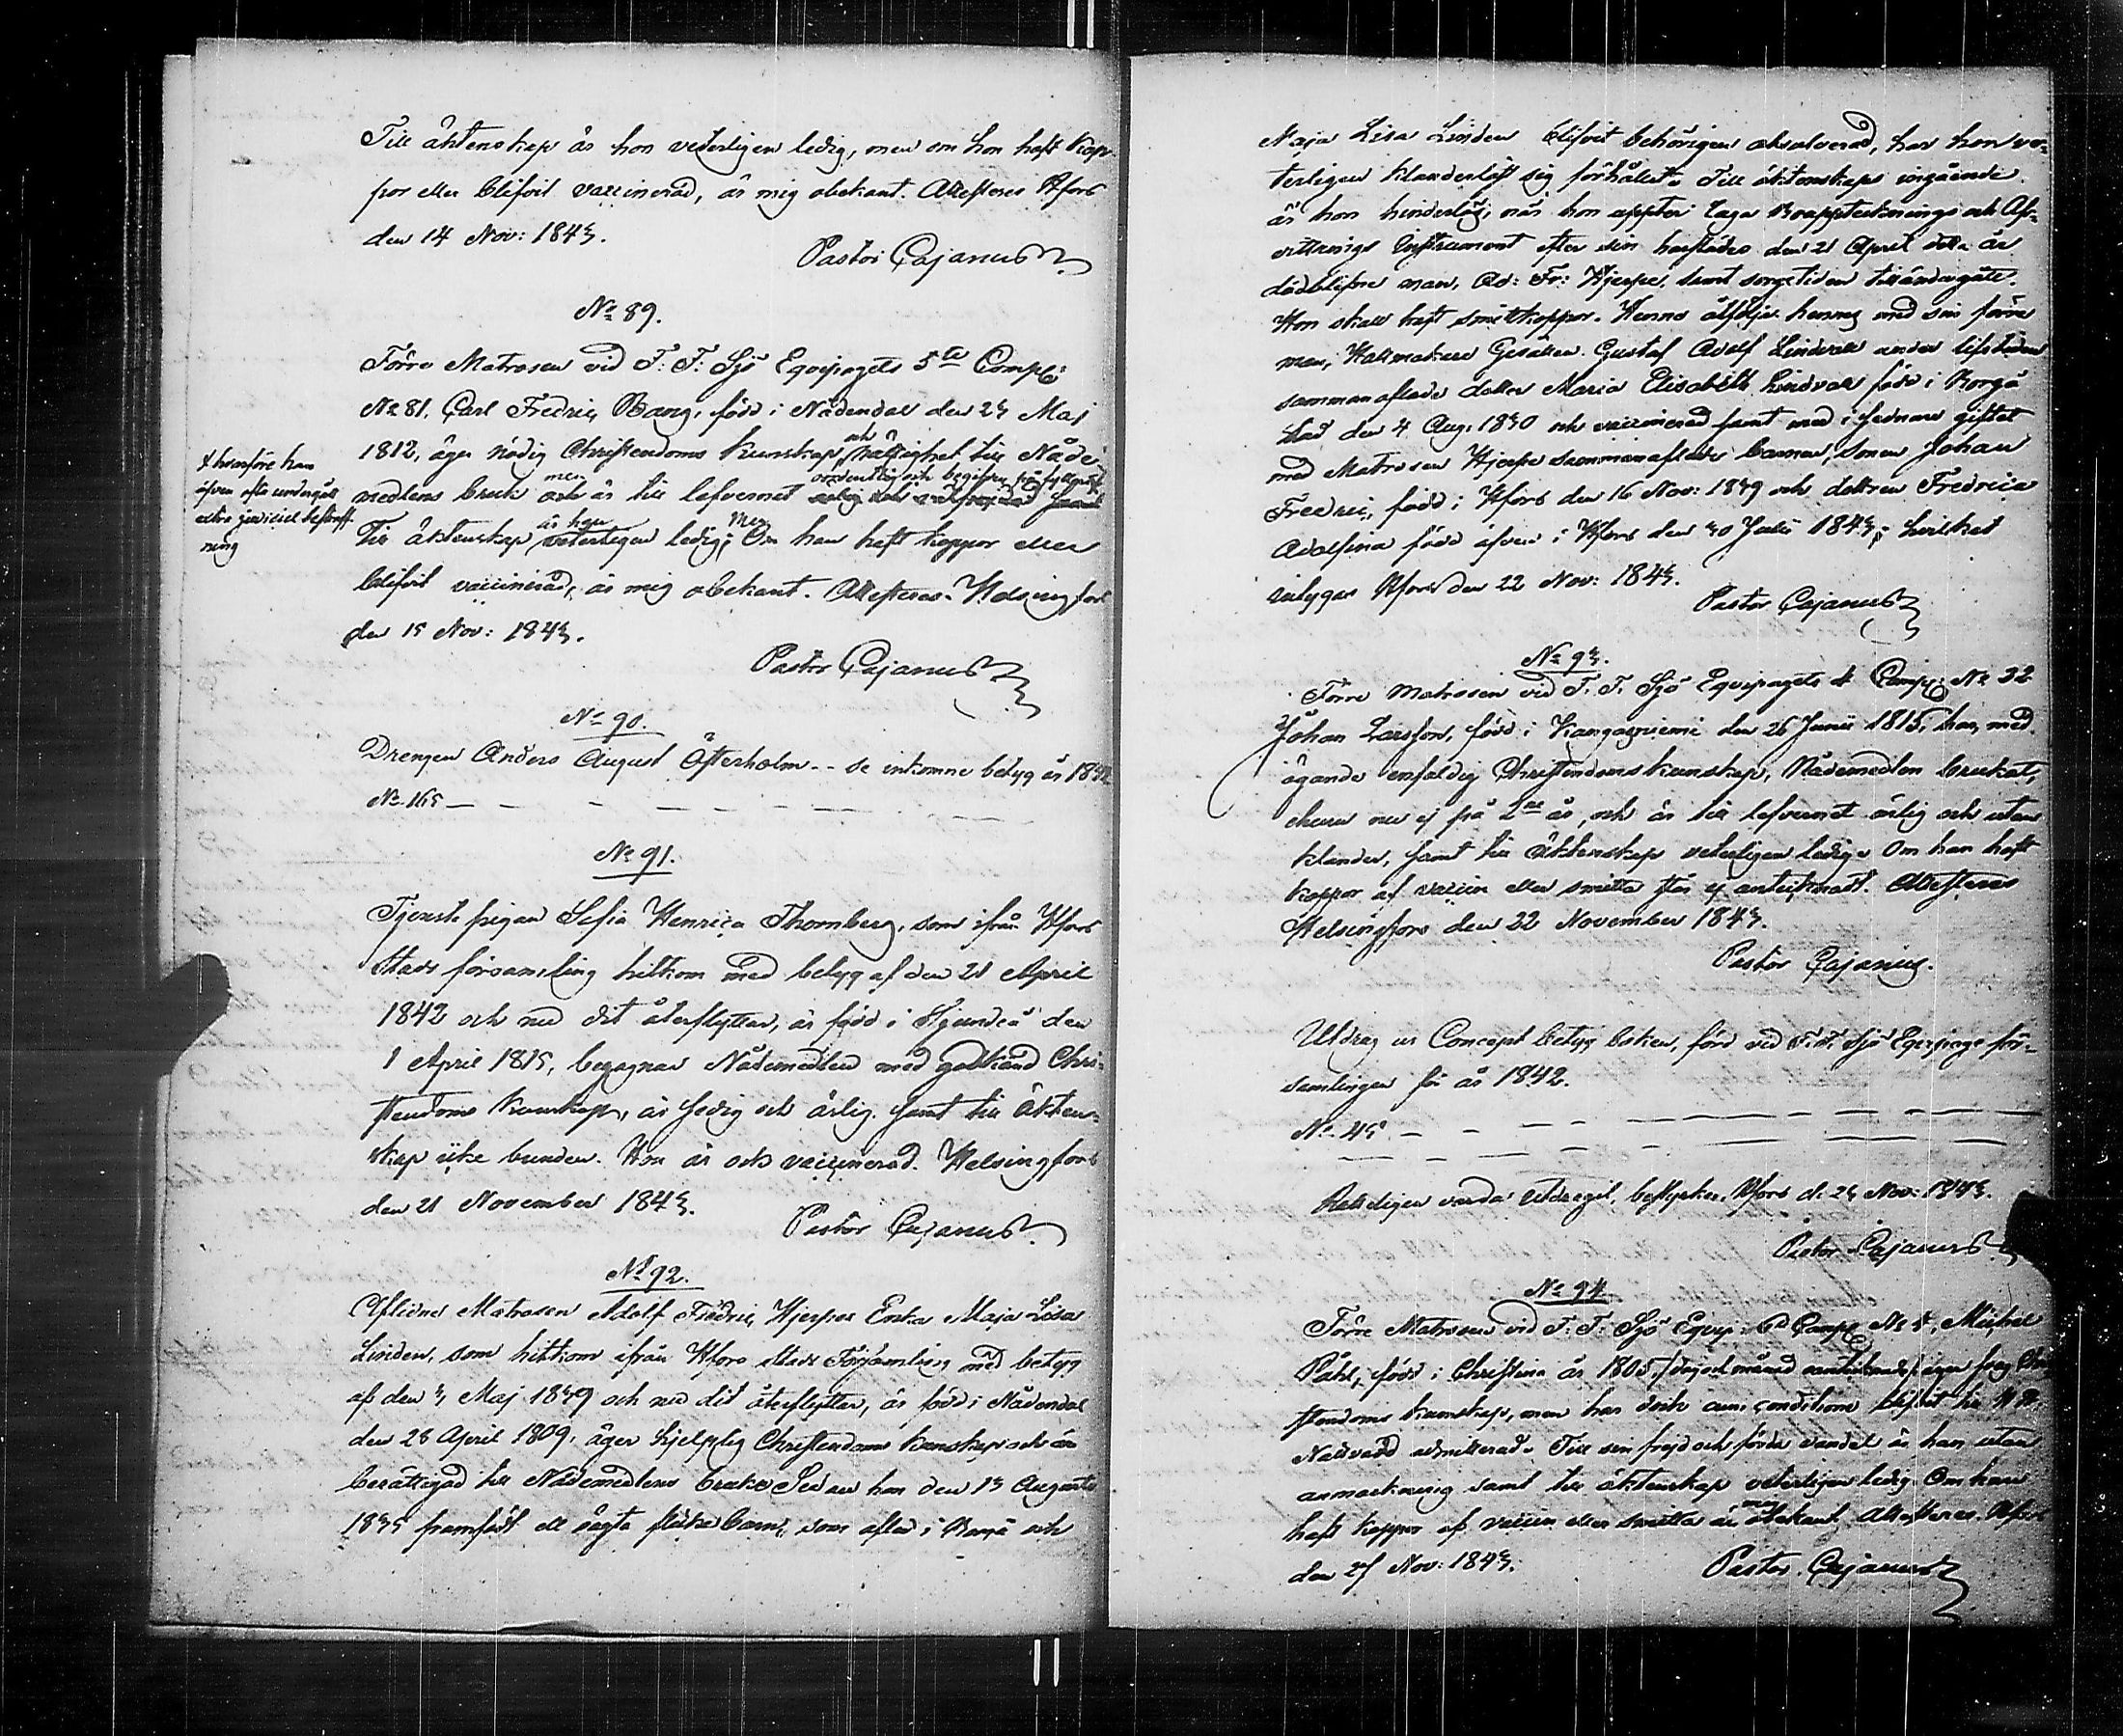 Till äktenskap är hon veterligen ledig, men om hon haft kop-
por eller blifvit vaccinerad, är mig obekant. Attesteras Hfors
den 14 Nov: 1843.
Pastor Cajanus
No 89.
Förre Matrosen vid F: F: Sjö Equipagets 5te Comp:
No 81. Carl Fredric Bang, född i Nådendal den 23 Maj
1812, äger nödig Christendoms kunskap och rättighet till Nåde-
medlens bruk men är till lefvernet oordentlig och begifven på fylleri
+ hvarföre han
äfven ofta undergått
extra judiciel bestraff-
ning
Till äktenskap är han veterligen ledig; Men Om han haft koppor eller
blifvit vaccinerad, är mig obekant. Attesteras. Helsingfors
den 15 Nov: 1843.
Pastor Cajanus
No 90.
Drengen Anders August Österholm -- se inkomne betyg år 1842
No 165 — — — — — — —
No 91.
Tjenste pigan Sofia Henrica Thornberg, som ifrån Hfors
Stads församling hitkom med betyg af den 21 April
1842 och nu dit återflyttar, är född i Sjundeå den
1 April 1815, begagnar Nådemedlen med godkänd Chri-
stendoms kunskap, är fredig och ärlig samt till äkten-
skap icke bunden. Hon är ock vaccinerad. Helsingfors
den 21 November 1843.
Pastor Cajanus
No 92.
Aflidne Matrosen Adolf Fredric Hjerpes Enka Maja Lisa
Linden, som hitkom ifrån Hfors Stads Församling med betyg
af den 3 Maj 1839 och nu dit återflyttar, är född i Nådendal
den 28 April 1809, äger hjelplig Christendoms kunskap och är
berättigad till Nådemedlens bruk. Sedan hon den 13 Augusti
1835 framfödt ett oägta flicke barn, som aflad i Borgå och
Maja Lisa Linden blifvit behörigen absolverad, har hon ve-
terligen klanderlöst sig förhållit. Till äktenskaps ingående
är hon hinderlös, när hon uppter laga Bouppteknings och Af-
vittrings Instrument efter sin härstädes den 21 April detta år
dödblifne man, Ad: Fr: Hjerpe, samt sorgetiden tilländagått.
Hon skall haft smittkoppor. Henne åtföljer hennes med sin förra
man, Hattmakare Gesällen Gustaf Adolf Lindvall under lifstiden
sammanaflade dotter Maria Elisabeth Lindvall född i Borgå
stad den 4 Aug: 1830 och vaccinerad samt med i sednare giftet
med Matrosen Hjerpe sammanaflade barnen, sonen Johan
Fredric, född i Hfors den 16 Nov: 1839 och dottren Fredrica
Adolfina född äfven i Hfors den 30 Julii 1843; hvilket
intygar Hfors den 22 Nov: 1843.
Pastor Cajanus
No 93.
Förre Matrosen vid F. F. Sjö Equipagets 4 Comp: No 32
Johan Larsson, född i Kangasniemi den 26 Junii 1815, har, med
ägande enfaldig Christendoms kunskap, Nådemedlen brukat,
ehuru nu ej på 2ne år, och är till lefvernet ärlig och utan
klander, samt till äktenskap veterligen ledig. Om han haft
koppor af vaccin eller smitta står ej antecknadt. Attesteras
Helsingfors den 22 November 1843.
Pastor Cajanus.
Utdrag ur Concept betyg boken, förd vid F. F. Sjö Equipage för-
samlingen för år 1842.
No 45 — — — — — — —
— — — — — — —
Rätteligen vara utdraget, bestyrker. Hfors d. 23 Nov: 1843.
Pastor Cajanus
No 94
Förre Matrosen vid F: F: Sjö Equip: Comp No 5, Michel
Påhl, född i Christina år 1805, dag och månad äger svag Chri-
stendoms kunskap, men har dock cum conditione blifvit till H. H.
Nattvard admitterad. Till sin frejd och förda vandel är han utan
anmärkning samt till äktenskap veterligen ledig. Om han
haft koppor af vaccin eller smitta är mig obekant. Attesteras. Hfors
den 27 Nov: 1843.
Pastor. Cajanus